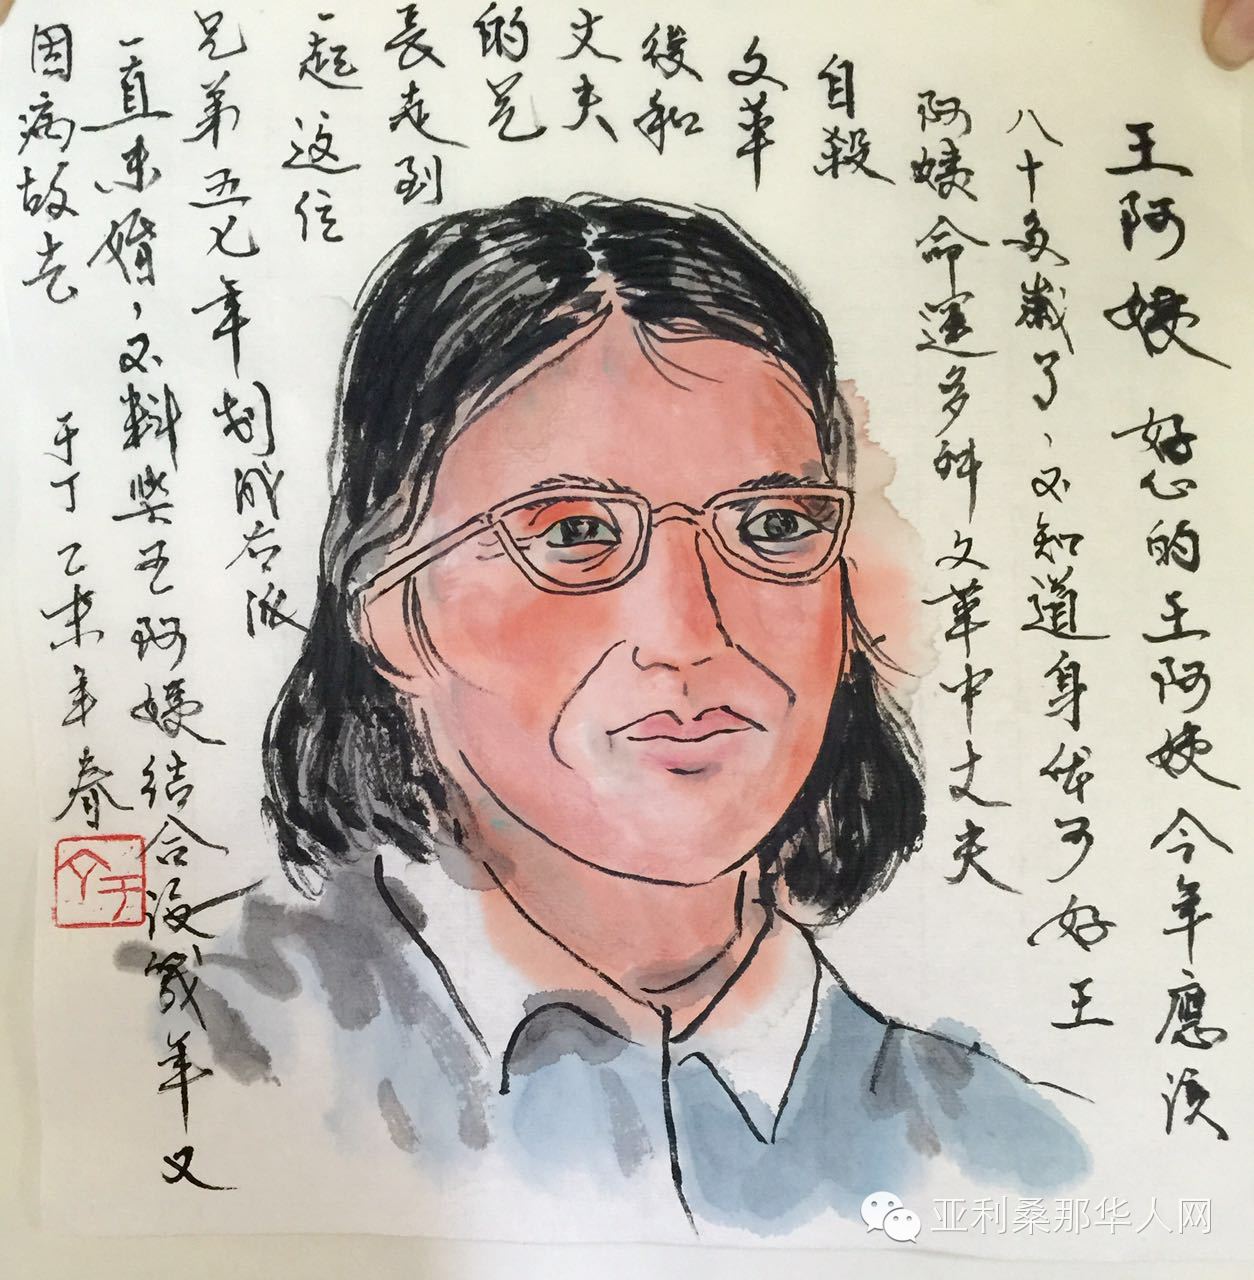 王阿姨 好心的王阿姨今年應该
八十多歲了、不知道身体可好王
阿姨命運多舛文革中丈夫
自殺
文革
後和
丈夫
的兄
長走到
一起這位
兄弟五七年划成右派
一直未婚，不料與王阿姨結合没幾年又
因病故去
于丁乙未年春
亚利桑那华人网